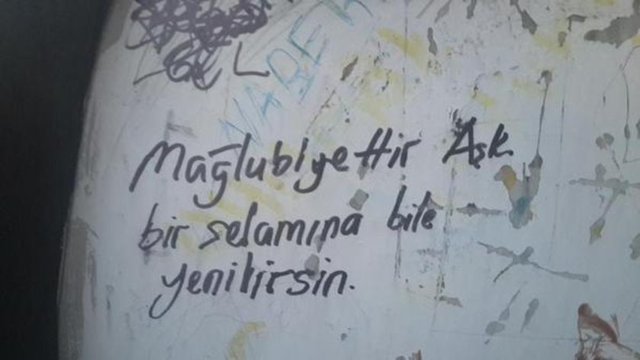 GEL
NABER
Mağlubiyettir Aşk
bir selamına bile
yenilirsin.